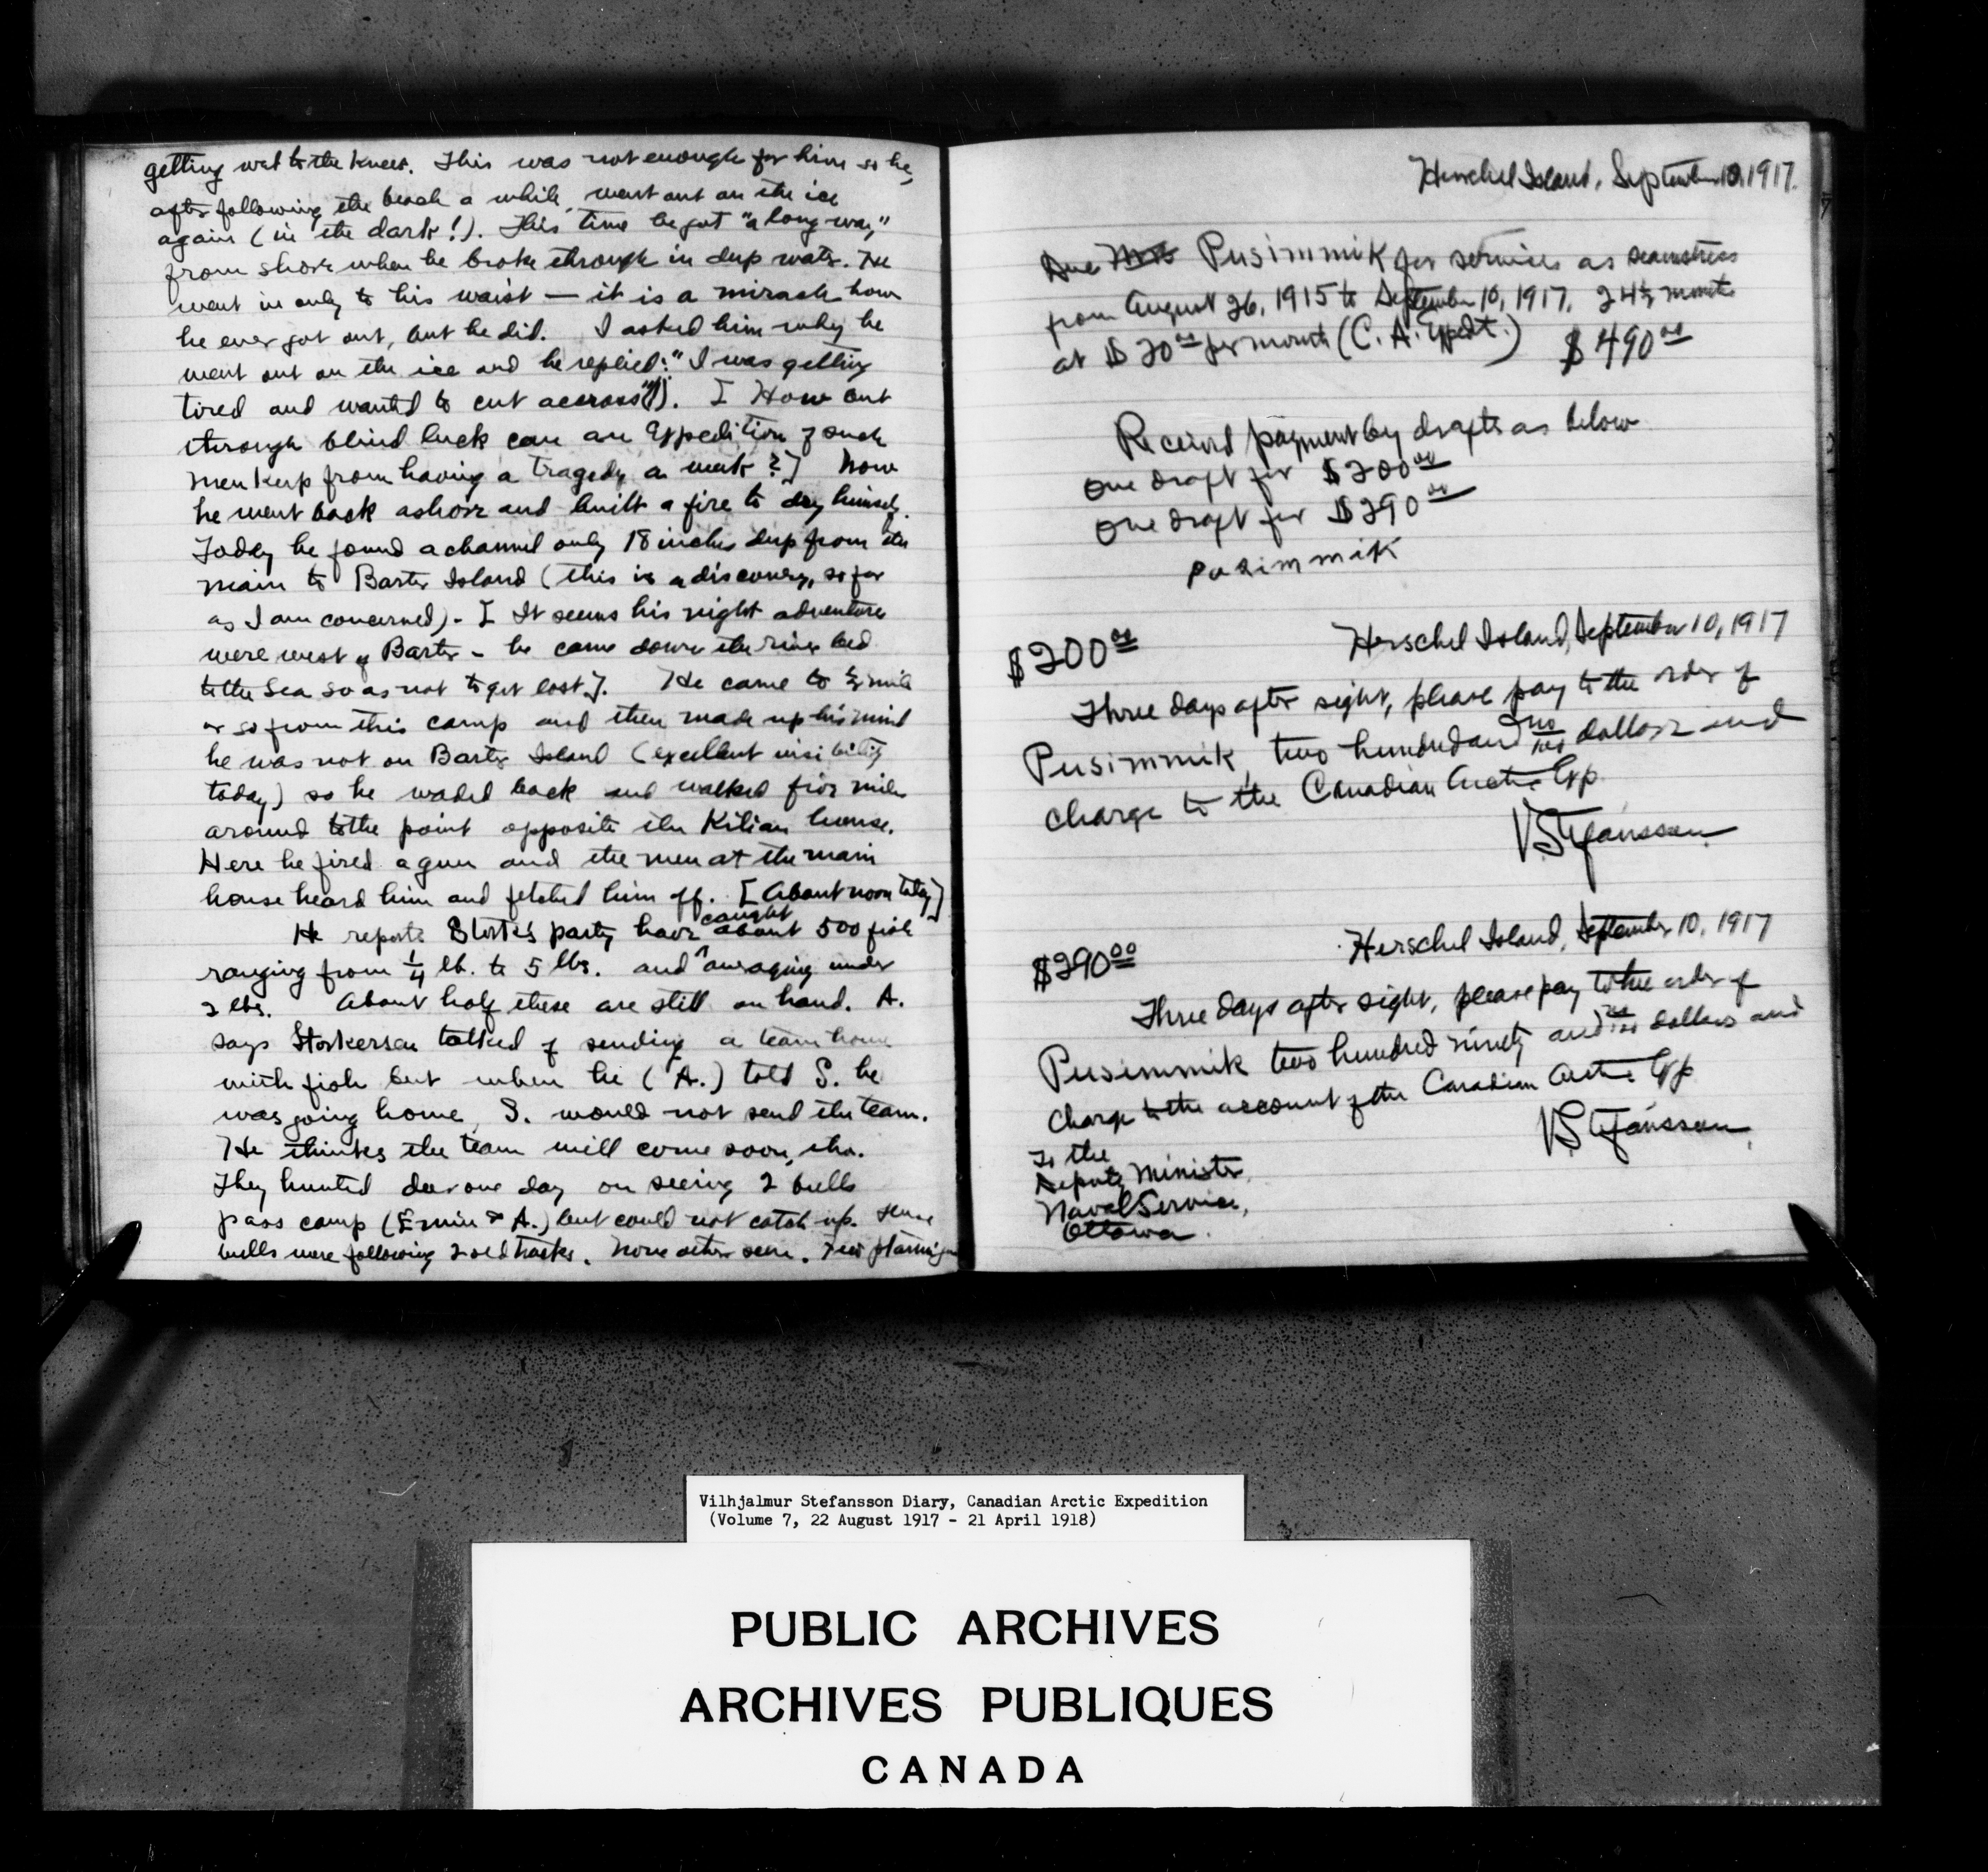 getting wet to the knees. This was not enough for him so he,
after following the beach a while, went out on the ice
again (in the dark!). This time he got "a long way"
from shore when he broke through in deep water. He
went in only to his waist — it is a miracle how
he ever got out, but he did. I asked him why he
went out on the ice and he replied: "I was getting
tired and wanted to cut accross"!). [How but
through blind luck can an Expedition of such
men keep from having a tragedy a week?] Now
he went back ashore and built a fire to dry himself.
Today he found a channel only 18 inches deep from the
main to Barter Island (this is a discovery, so far
as I am concerned) - [It seems his night adventures
were west of Barter - he came down the river bed
to the sea so as not to get lost]. He came to ½ mile
or so from this camp and then made up his mind
he was not on Barter Island (excellent visibility
today) so he waded back and walked five miles
around to the point opposite the Kilian house.
Here he fired a gun and the men at the main
house heard him and fetched him off. [About noon today]
He reports Stork's party have caught about 500 fish
ranging from ¼ lb. to 5 lbs. and averaging under
2 lbs. About half these are still on hand. A.
says Storkerson talked of sending a team home
with fish but when he (A.) told S. he
was going home, S. would not send the team.
He thinks the team will come soon, tho.
They hunted deer one day on seeing 2 bulls
pass camp (Emiu & A.) but could not catch up. These
bulls were following 2 old tracks. None other seen. Few ptarmigan
Herschel Island, September 10, 1917.
Due Mrs Pusimmik for services as seamstress
from August 26, 1915 to September 10, 1917. 24½ months
at $20.00 per month (C. A. Expdt.) $490.00
Received payment by drafts as below
One draft for $200.00
One draft for $290.00
Pusimmik
Herschel Island, September 10, 1917
$200.00
Three days after sight, please pay to the order of
Pusimmik, two hundred and no/100 dollars and
charge to the Canadian Arctic Exp.
V Stefansson
Herschel Island, September 10, 1917
$290.00
Three days after sight, please pay to the order of
Pusimmik two hundred ninety and no/100 dollars and
charge to the account of the Canadian Arctic Exp
V Stefansson
To the
Deputy Minister,
Naval Service,
Ottawa.
Vilhjalmur Stefansson Diary, Canadian Arctic Expedition
(Volume 7, 22 August 1917 - 21 April 1918)
PUBLIC ARCHIVES
ARCHIVES PUBLIQUES
CANADA